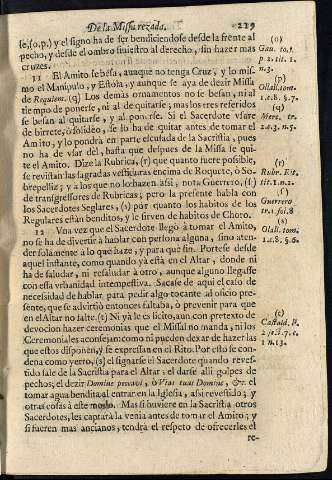 De la Missa rezada. 229
se, (o.p.) y el signo ha de ser bendiciendose desde la frente al
pecho, y desde el ombro siniestro al derecho, sin hazer mas
cruzes.
11 El Amito se besa, aunque no tenga Cruz, y lo mis-
mo el Manipulo, y Estola, y aunque se aya de dezir Missa
de Requiem. (q) Los demàs ornamentos no se besan, ni al
tiempo de ponerse, ni al de quitarse; mas los tres referidos
se besan al quitarse, y al ponerse. Si el Sacerdote vsare
de birrete, ò solideo, se lo ha de quitar antes de tomar el
Amito, y lo pondrà en parte escusada de la Sacristia, pues
no ha de vsar del, hasta que despues de la Missa se qui-
te el Amito. Dize la Rubrica, (r) que quanto fuere possible,
se revistan las sagradas vestiduras encima de Roquete, ò So-
brepelliz; y a los que no lo hazen assi, nota Guerrero, (s)
de transgressores de Rubricas; pero la presente habla con
los Sacerdotes Seglares, por quanto los habitos de los
Regulares estàn benditos, y le sirven de habitos de Choro.
12 Vna vez que el Sacerdote llegò à tomar el Amito,
no se ha de divertir à hablar con persona alguna, sino aten-
der solamente à lo que haze, y para que fin. Portese desde
aquel instante, como quando yà està en el Altar, donde ni
ha de saludar, ni resaludar à otro, aunque alguno llegasse
con essa vrbanidad intempestiva. Sacase de aqui el caso de
necessidad de hablar, para pedir algo tocante al oficio pre-
sente, que se advirtiò entonces faltaba, ò prevenir para que
en el Altar no falte. (t) Ni yà le es licito, aun con pretexto de
devocion hazer ceremonias que el Missal no manda, ni los
Ceremoniales aconsejan: como ni pueden dexar de hazer las
que estos disponen, y se expressan en el Rito. Por esto se con-
dena como yerro, (s) el signarse el Sacerdote quando revesti-
do sale de la Sacristia para el Altar: el darse alli golpes de
pechos; el dezir Domine peccavi, ò Vias tuas Domine, &c. el
tomar agua bendita al entrar en la Iglesia, assi revestido; y
otras cosas à este modo. Mas si huviere en la Sacristia otros
Sacerdotes, les captarà la venia antes de tomar el Amito; y
si fueren mas ancianos, tendrà el respeto de ofrecerles el
re-
(o)
Gav. to. 1.
p. 2. tit. 1.
n. 3.
(p)
Olall. tom.
1. c. 8. §. 7.
(q)
Merc. tr.
2. d. 3. n. 5.
(r)
Rubr. Rit.
tit. 1. n. 2.
(s)
Guerrero
trt. fol. 8
(s)
Olall. tom.
2. c. 8. §. 6.
(t)
Castald. R.
2. s. 7. c.
1 n. 13.